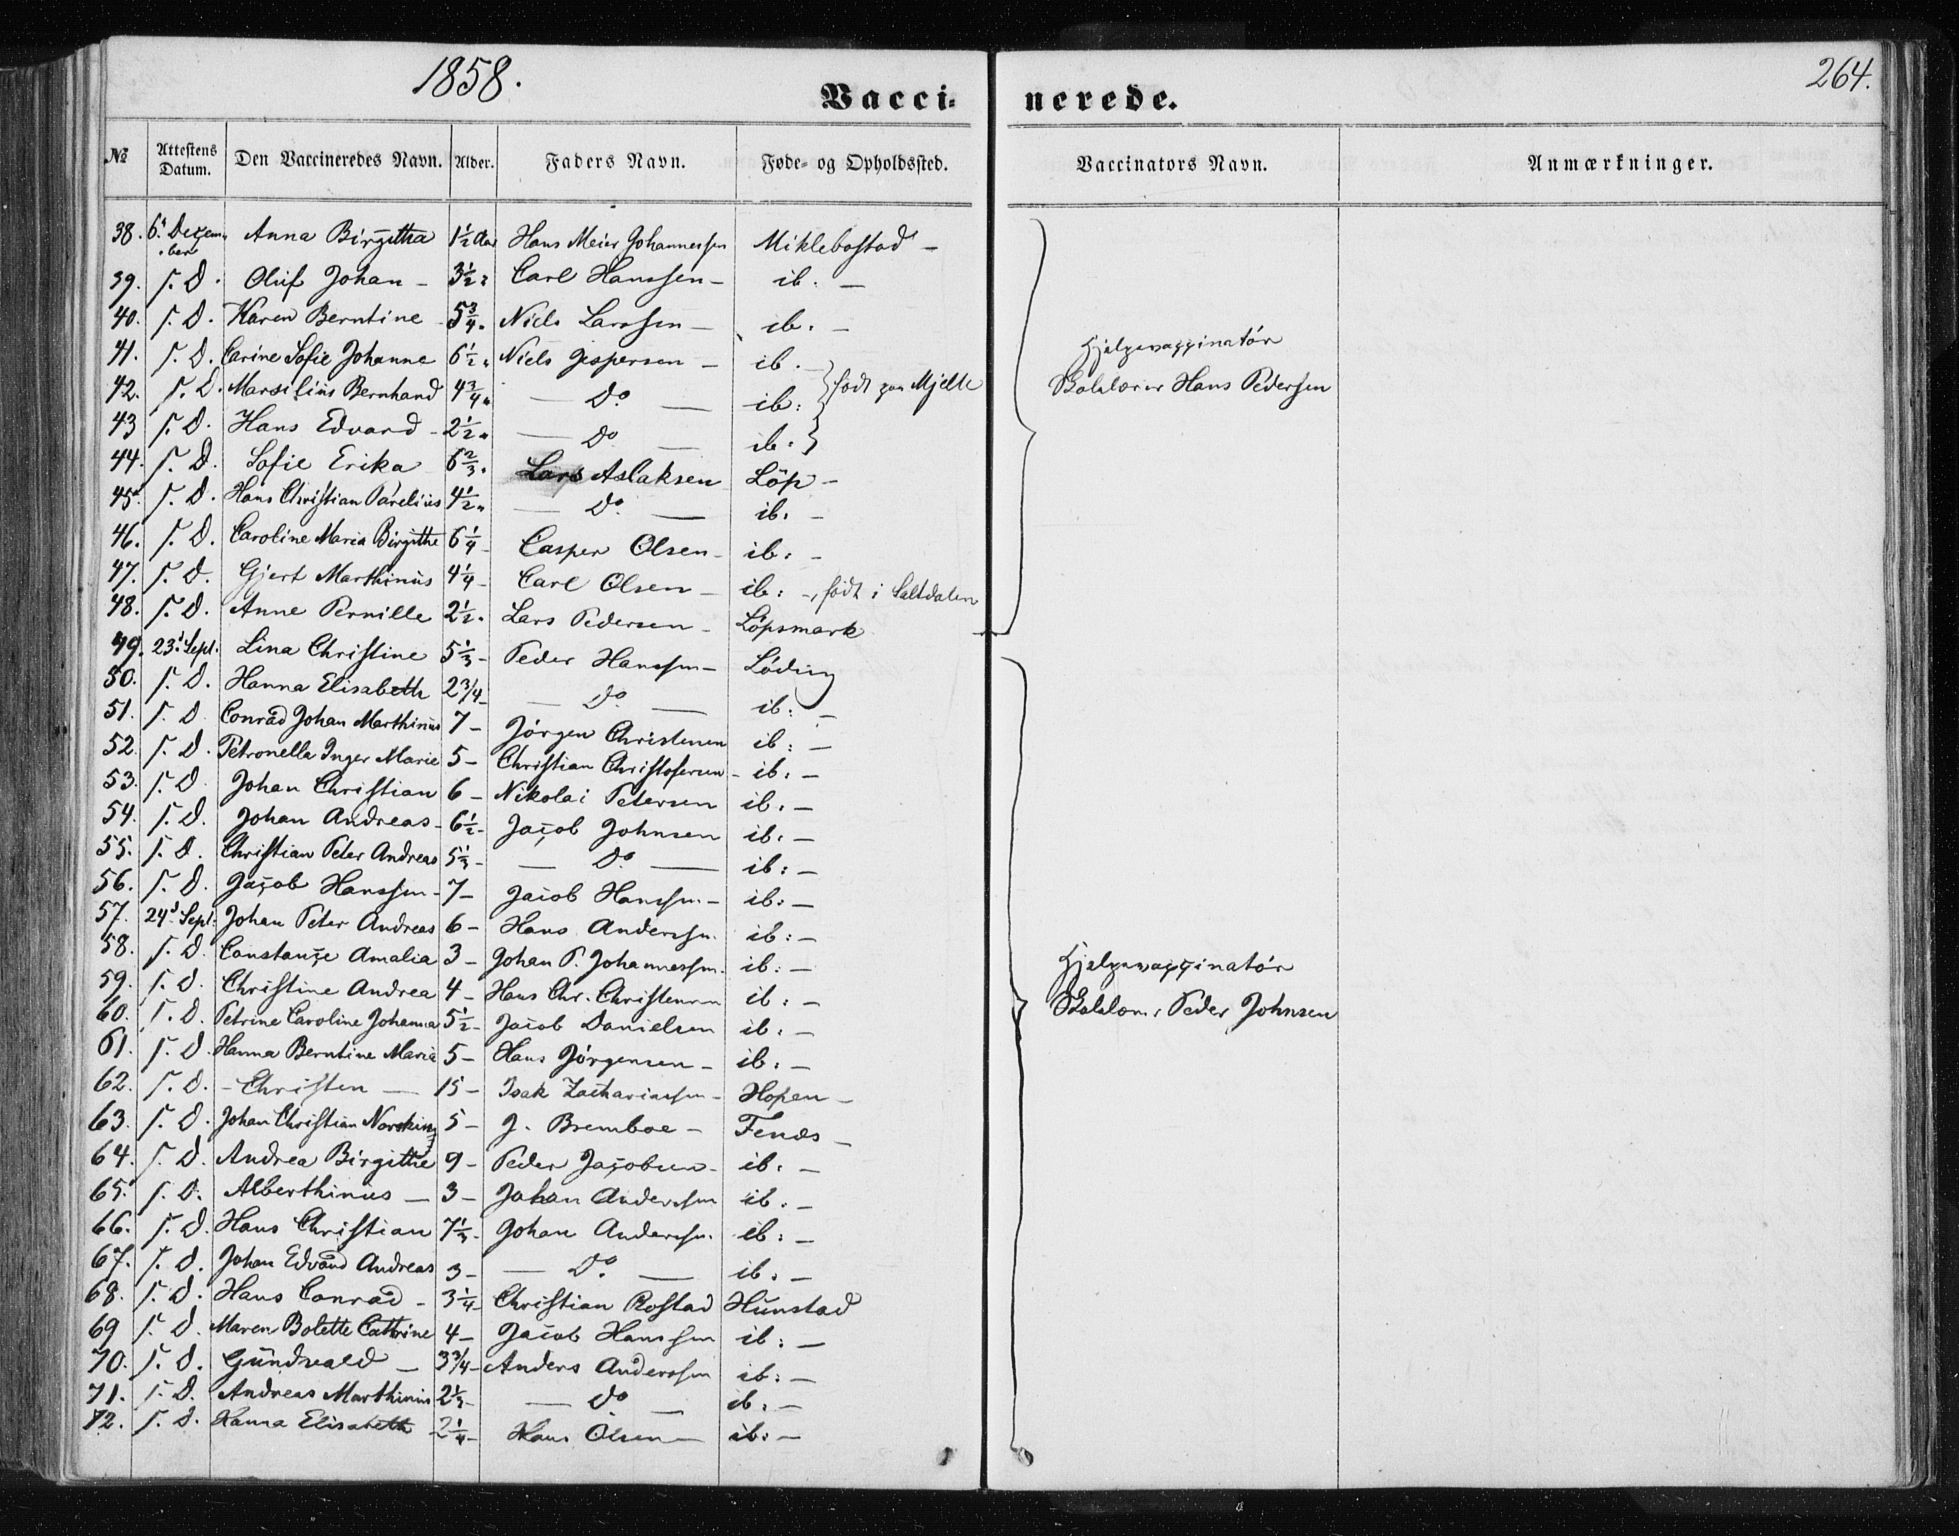 1858.
264.
Vacci-
nerede.
№ Attestens Datum. Den Vaccineredes Navn. Alder. Faders Navn. Føde- og Opholdssted. Vaccinators Navn. Anmærkninger.
38. 6' Decem- ber Anna Birgitha 1 1/2 Aar Hans Meier Johannessen Miklebostad -
39. s. D. Oluf Johan - 3 1/2 " Carl Hanssen - ib. -
40. s. D. Karen Berntine 5 3/4 " Niels Larssen - ib. -
41. s. D. Carine Sofie Johanne 6 1/2 " Niels Jespersen - ib. -
42. s. D. Marsilius Bernhard 4 3/4 " - Do - ib: født paa Mjelle
43 s. D. Hans Edvard - 2 1/2 " - Do - ib. 
44. s. D. Sofie Erika 6 2/3 " Lars Aslaksen Løp -
45. s. D. Hans Christian Parelius 4 1/2 " - Do - ib. -
46. s. D. Caroline Maria Birgithe 6 1/4 - Casper Olsen - ib: -
47. s. D. Gjert Marthinus 4 1/4 - Carl Olsen - ib: -, født i Saltdalen
48. s. D. Anne Pernille 2 1/2 " Lars Pedersen - Løpsmark
Hjelpevaccinatør
Skolelærer Hans Pedersen
49. 23' Sept. Lina Christine 5 1/3 - Peder Hanssen - Løding
50. s. D. Hanna Elisabeth 2 3/4 - - Do - ib: -
51. s. D. Conrad Johan Marthinus 7 - Jørgen Christensen ib: -
52. s. D. Petronella Inger Marie 5 - Christian Christofersen - ib: -
53. s. D. Johan Christian 6 - Nikolai Petersen ib. -
54. s. D. Johan Andreas - 6 1/2 - Jacob Johnsen ib. -
55. s. D. Christian Peter Andreas 5 1/3 - - Do - ib: -
56. s. D. Jacob Hanssen - 7 - Jacob Hanssen - ib: -
57. 24' Sept. Johan Peter Andreas 6 - Hans Anderssen ib: -
58. s. D. Constance Amalia 3 - Johan P. Johannessen. ib: -
59. s. D. Christine Andrea 4 - Hans Chr. Christensen ib: -
60. s. D. Petrine Caroline Johanna 5 1/2 - Jacob Danielsen ib. -
61. s. D. Hanna Berntine Maria 5 - Hans Jørgensen - ib. -
62. s. D. - Christen - 15 - Isak Zachariassen - Hopen -
63. s. D. Johan Christian 5 - J. Bremboe - Fenes -
64. s. D. Andrea Birgithe 9 - Peder Jacobsen - ib. -
65. s. D. Alberthinus - 3 - Johan Anderssen ib. -
66. s. D. Hans Christian 7 1/3 - Johan Anderssen. ib: -
67. s. D. Johan Edvard Andreas 3 - - Do - ib. -
68. s. D. Hans Conrad - 3 1/4 - Christian Rostad Hunstad
69 s. D. Maren Bolette Cathrine 4 - Jacob Hanssen ib: -
70. s. D. Gundvald - 3 3/4 - Anders Anderssen ib: -
71. s. D. Andreas Marthinus 2 1/3 - - Do - ib. -
72. s. D. Hanna Elisabeth 2 1/4 - Hans Olsen - ib: -
Hjelpevaccinatør
Skolelærer Peder Johnsen